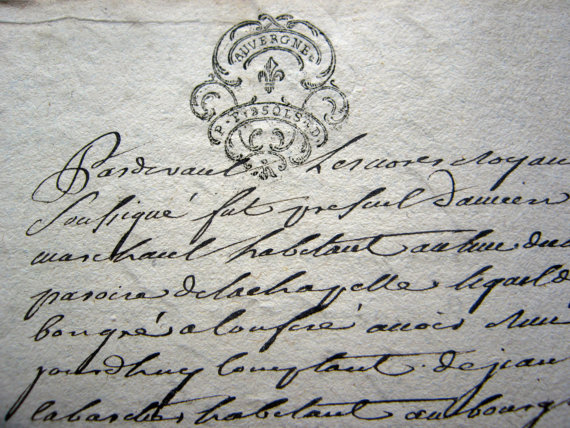 AUVERGNE
P. PR 3 SOLS. D
Pardevant Le notere Royau
Soussigné fut present damien
marchant habitant au lieu du
paroire de lachapelle lequel d
bon gré a Confessé avoir
jourdhuy Comptant de jean
labar habitant au bourg